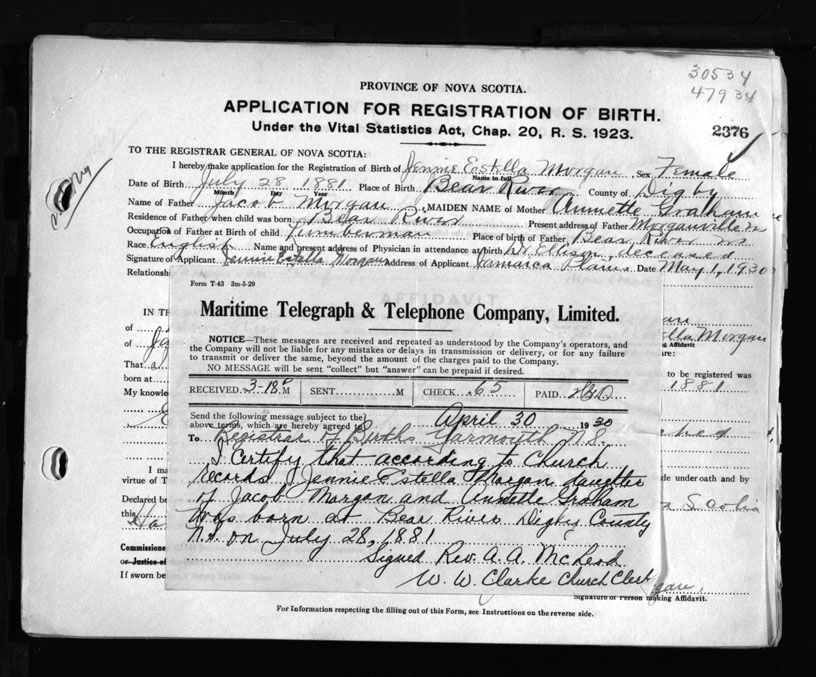 30534
47934
PROVINCE OF NOVA SCOTIA.
APPLICATION FOR REGISTRATION OF BIRTH.
Under the Vital Statistics Act, Chap. 20, R. S. 1923.
2376
TO THE REGISTRAR GENERAL OF NOVA SCOTIA:
I hereby make application for the Registration of Birth of Jennie Estella Morgan, Sex Female
Name in full
Date of Birth July 28 1881 Place of Birth Bear River County of Digby
Month Day Year
Name of Father Jacob Morgan, MAIDEN NAME of Mother Annette Graham
Residence of Father when child was born Bear River Present address of Father Morganville
Occupation of Father at Birth of child Lumberman Place of birth of Father, Bear River
Race English Name and present address of Physician in attendance at birth Dr Ellison, deceased
Signature of Applicant Jennie Estella Morgan address of Applicant Jamaica Plains Date May 1, 1930
Relationsh
AFFIDAVIT
IN TH
of
of
ella Morgan
Affidavit
re:
That
born at
to be registered was
1881
My knowle
I ma
virtue of T
de under oath and by
Declared be
this
Scotia
Commissione
or Justice of
If sworn be
Form T-43 3m-5-29
Maritime Telegraph & Telephone Company, Limited.
NOTICE—These messages are received and repeated as understood by the Company's operators, and
the Company will not be liable for any mistakes or delays in transmission or delivery, or for any failure
to transmit or deliver the same, beyond the amount of the charges paid to the Company.
NO MESSAGE will be sent "collect" but "answer" can be prepaid if desired.
RECEIVED 3-18 P M SENT M CHECK .65 PAID
Send the following message subject to the
above terms, which are hereby agreed to April 30 1930
To Registrar of Births Yarmouth N.S.
I Certify that according to Church
records Jennie Estella Morgan daughter
of Jacob Morgan and Annette Graham
was born at Bear River Digby County
N.S. on July 28, 1881
Signed Rev. A. A. McLeod
W. W. Clarke Church Clerk
gan.
Signature of Person making Affidavit.
For Information respecting the filling out of this Form, see Instructions on the reverse side.